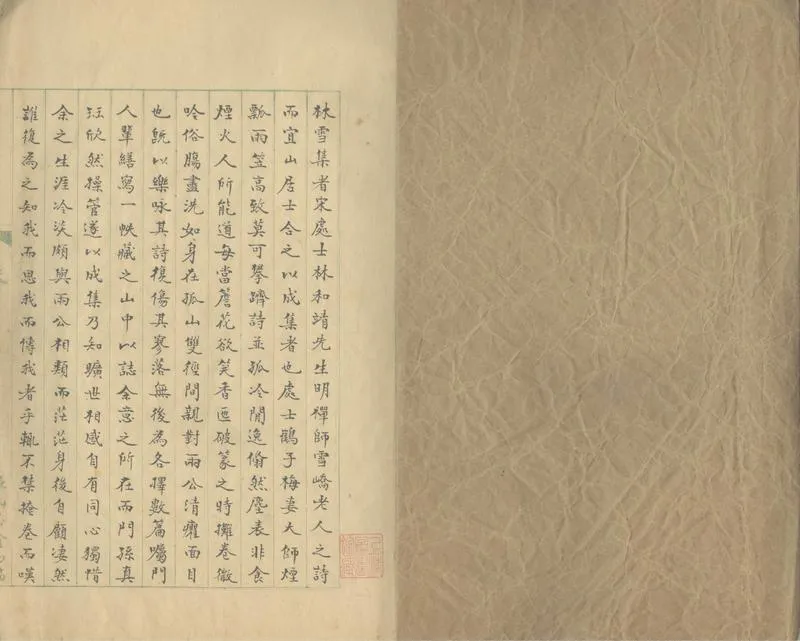 林雪集者宋處士林和靖先生明禪師雪嶠老人之詩
而宜山居士合之以成集者也處士鶴子梅妻大師煙
瓢雨笠高致莫可攀躋詩並孤冷閒逸翛然塵表非食
煙火人所能道每當簷花欲笑香區破篆之時攤卷微
吟俗腸盡洗如身在孤山雙徑間親對兩公清癯面目
也既以樂咏其詩復傷其寥落無後為各擇數篇囑門
人輩繕寫一帙藏之山中以誌余意之所在而門孫真
衍欣然操管遂以成集乃知曠世相感自有同心獨惜
余之生涯冷淡頗與兩公相類而茫茫身後自顧凄然
誰復為之知我而思我而傳我者乎輒不禁掩卷而嘆